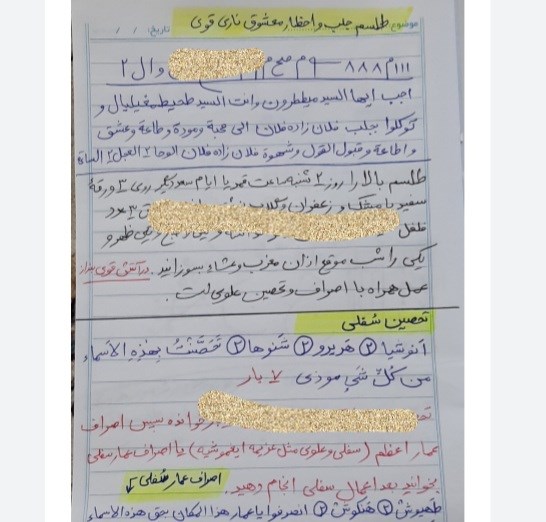 موضوع طلسم جلب و احظار معشوق ناری قوی تاریخ: / /
۱۱۱ م ۸۸۸ وال ۲
اجب ایها السید میططرون وانت السید طحیطمغیلیال و
توکلوا بجلب فلان زاده فلان الی محبة ومودة و طاعة وعشق
و اطاعة و قبول القول وشهوة فلان زاده فلان الوحا ۲ العجل ۲ الساعة
طلسم بالا را روز ۲ شنبه ساعت قمر یا ایام سعد دیگر روی ۳ ورقه
سفید با مشک و زعفران و گلاب ۳ عدد
فلفل ظهر و
یکی را شب موقع اذان مغرب و عشاء بسوزانید. در آتش قوی بنداز
عمل همراه با اصراف و تحصین علوی است.
تحصین سفلی
آنوشیا ۲ هریرو ۲ شنوها ۲ تَحَصَّنتُ بِهٰذِهِ الأسماء
من کلِّ شیٍ موذی ۷ بار
خوانده سپس اصراف
عمار اعظم (سفلی و علوی مثل عزیمه ایغموشیه) یا اصراف عمار سفلی
بخوانید بعد اعمال سفلی انجام دهید. اصراف عمار سُفلی
طهیوش ۲ هنکوش ۲ انصرفوا یا عمار هذا المکان بحق هذه الاسماء